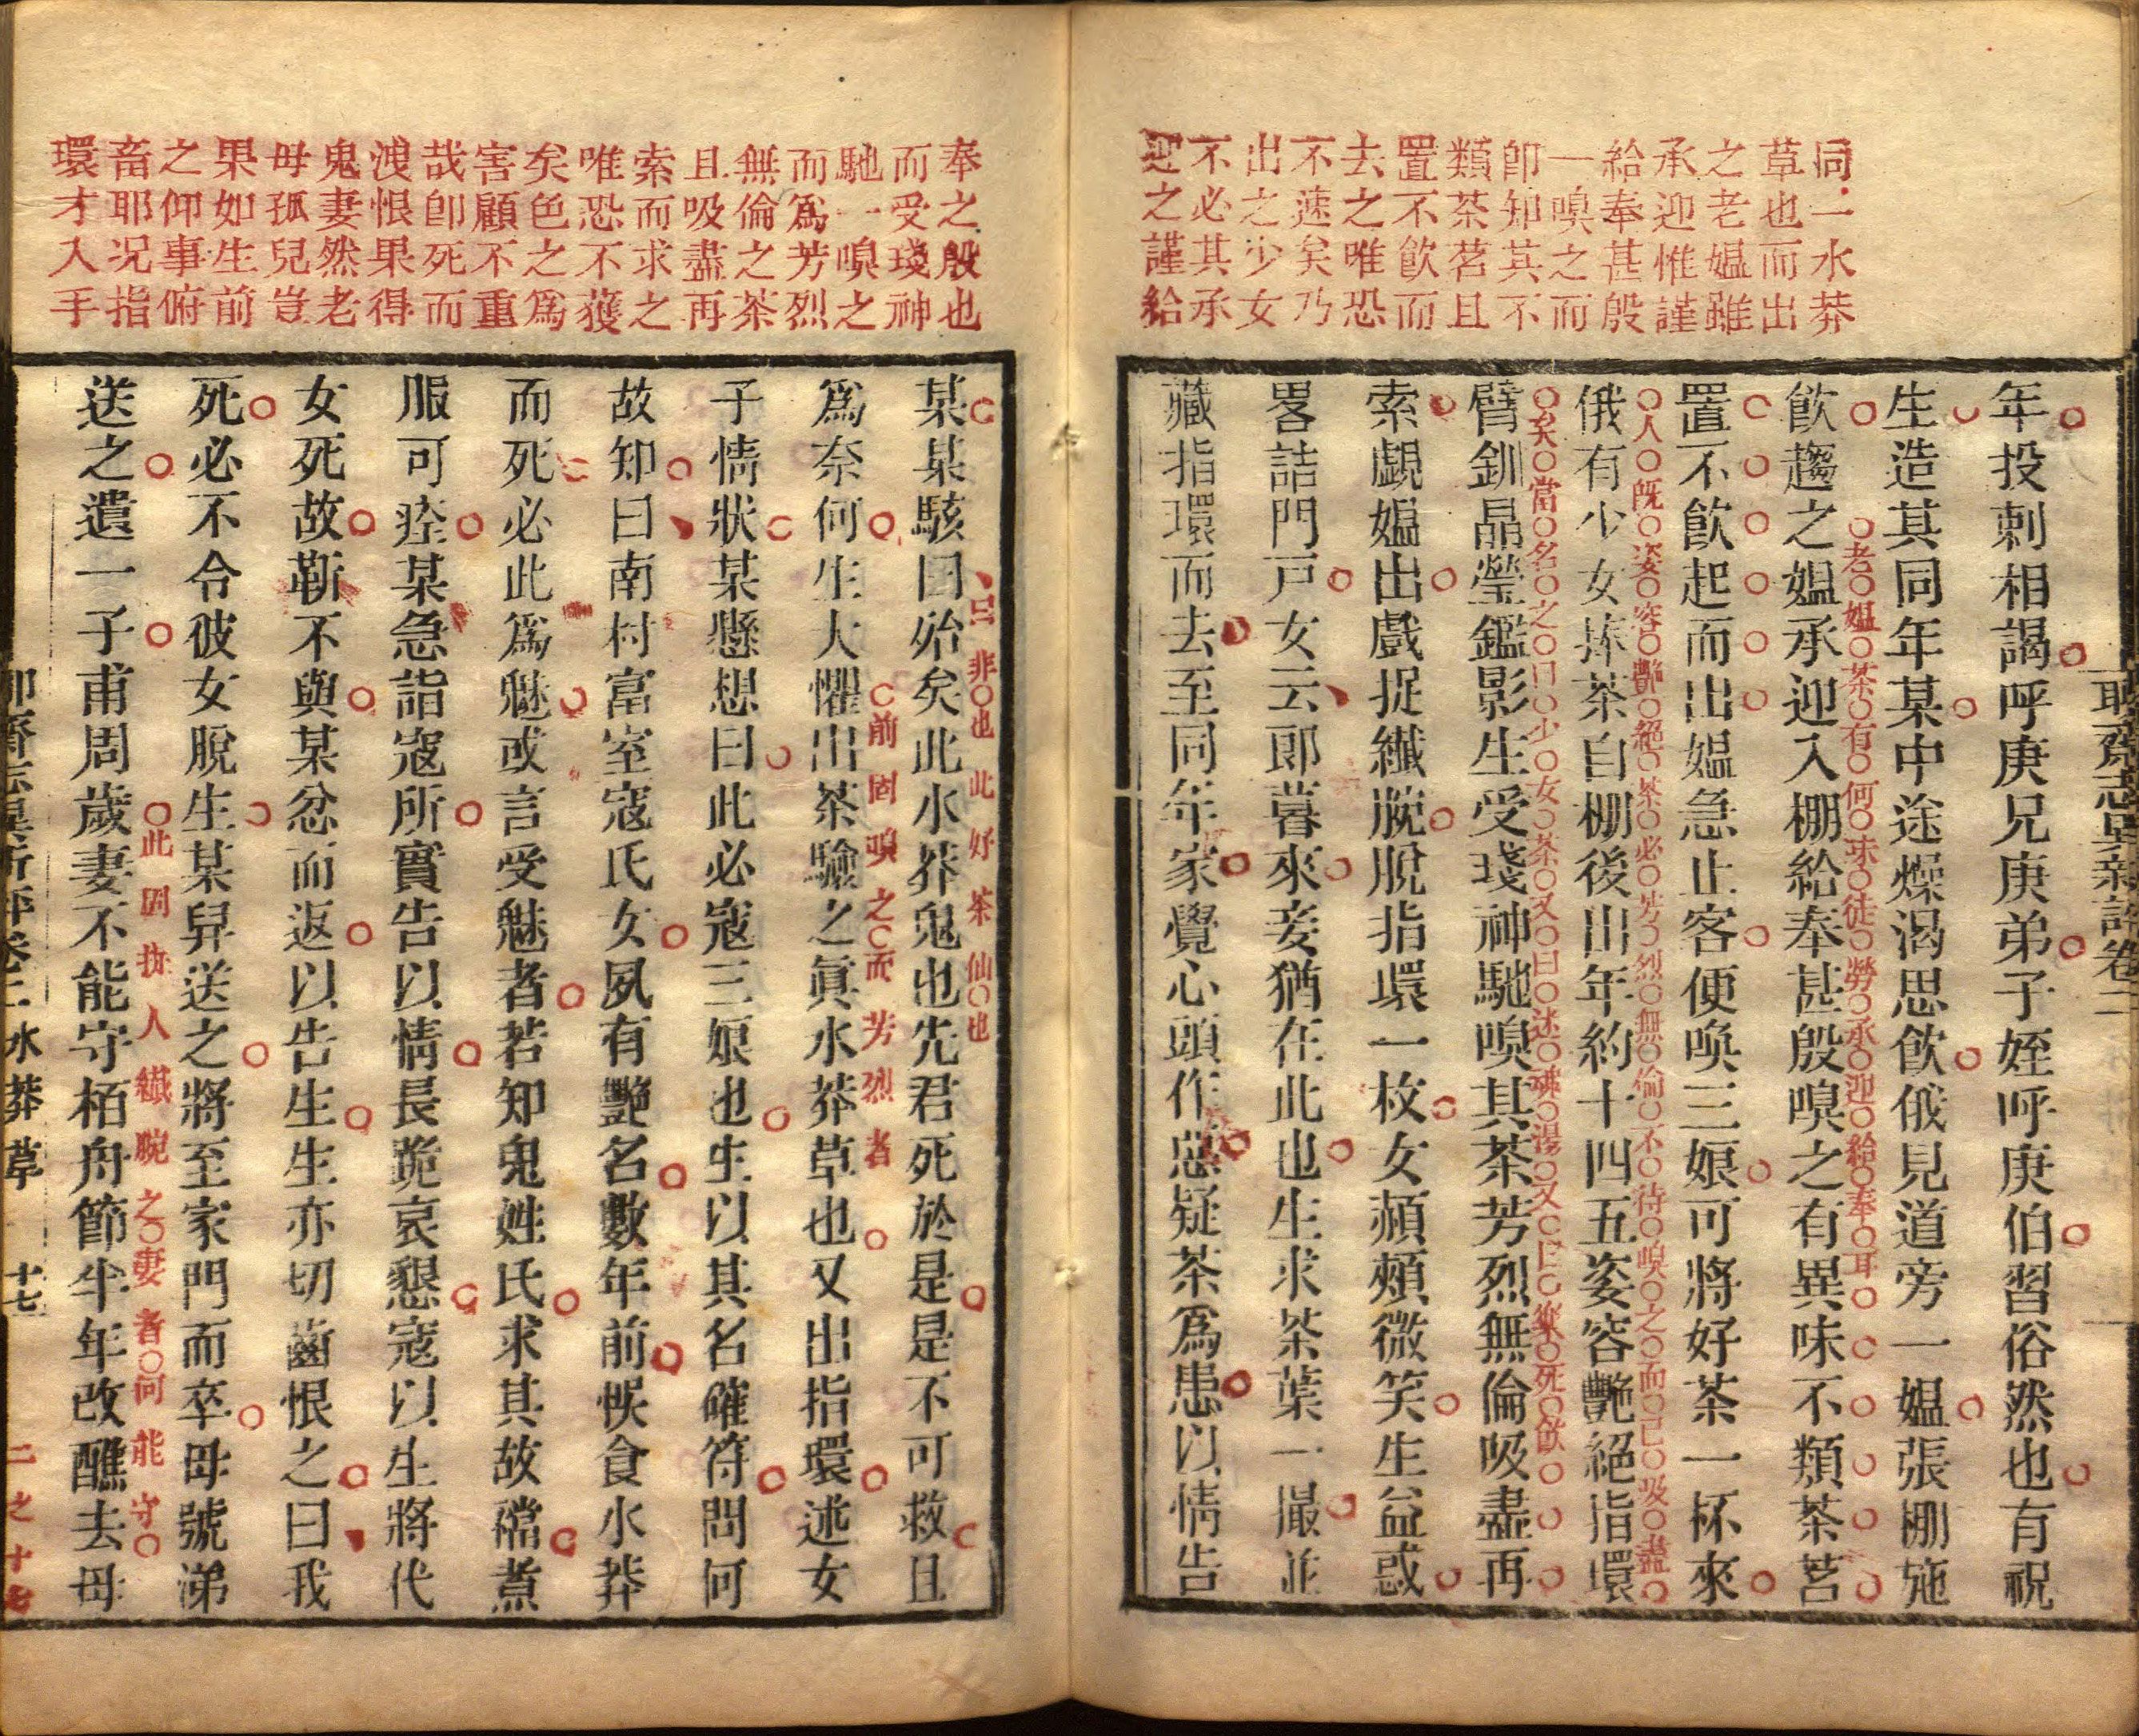 同一水莽
草也而出
之老媼雖
承迎惟謹
給奉甚殷
一嗅之而
卽知其不
類茶茗且
置不飲而
去之唯恐
不速矣乃
出之少女
不必其承
迎之謹給
聊齋志異新評卷二
年投刺相謁呼庚兄庚弟子姪呼庚伯習俗然也有祝
生造其同年某中途燥渴思飲俄見道旁一媼張棚施
老媼茶有何味徒勞承迎給奉耳
飲趨之媼承迎入棚給奉甚殷嗅之有異味不類茶茗
置不飲起而出媼急止客便喚三娘可將好茶一杯來
人旣姿容艷絕茶必芳烈無倫不待嗅之而已吸盡
俄有少女捧茶自棚後出年約十四五姿容艷絕指環
矣當名之曰少女茶又曰迷魂湯又曰樂死飲
臂釧晶瑩鑑影生受琖神馳嗅其茶芳烈無倫吸盡再
索覷媼出戲捉纖腕脫指環一枚女頳頰微笑生益惑
畧詰門戸女云郎暮來妾猶在此也生求茶葉一撮並
藏指環而去至同年家覺心頭作惡疑茶爲患以情告
奉之殷也
而受琖神
馳一嗅之
而爲芳烈
無倫之茶
且吸盡再
索而求之
唯恐不獲
矣色之爲
害顧不重
哉卽死而
洩恨果得
鬼妻然老
母孤兒豈
果如生前
之仰事俯
畜耶况指
環才入手
只非也此好茶仙也
某某駭囯殆矣此水莽鬼也先君死於是是不可救且
前固嗅之而芳烈者
爲奈何生大懼出茶驗之眞水莽草也又出指環述女
子情狀某懸想曰此必寇三娘也生以其名確符問何
故知曰南村富室寇氏女夙有艷名數年前悞食水莽
而死必此爲魅或言受魅者若知鬼姓氏求其故襠煮
服可痊某急詣寇所實告以情長跪哀懇寇以生將代
女死故靳不與某忿而返以告生生亦切齒恨之曰我
死必不令彼女脫生某舁送之將至家門而卒母號涕
此固捉人纖腕之妻者何能守
送之遺一子甫周歲妻不能守栢舟節半年改醮去母
聊齋志異新評卷二 水莽草 十七
二之十七